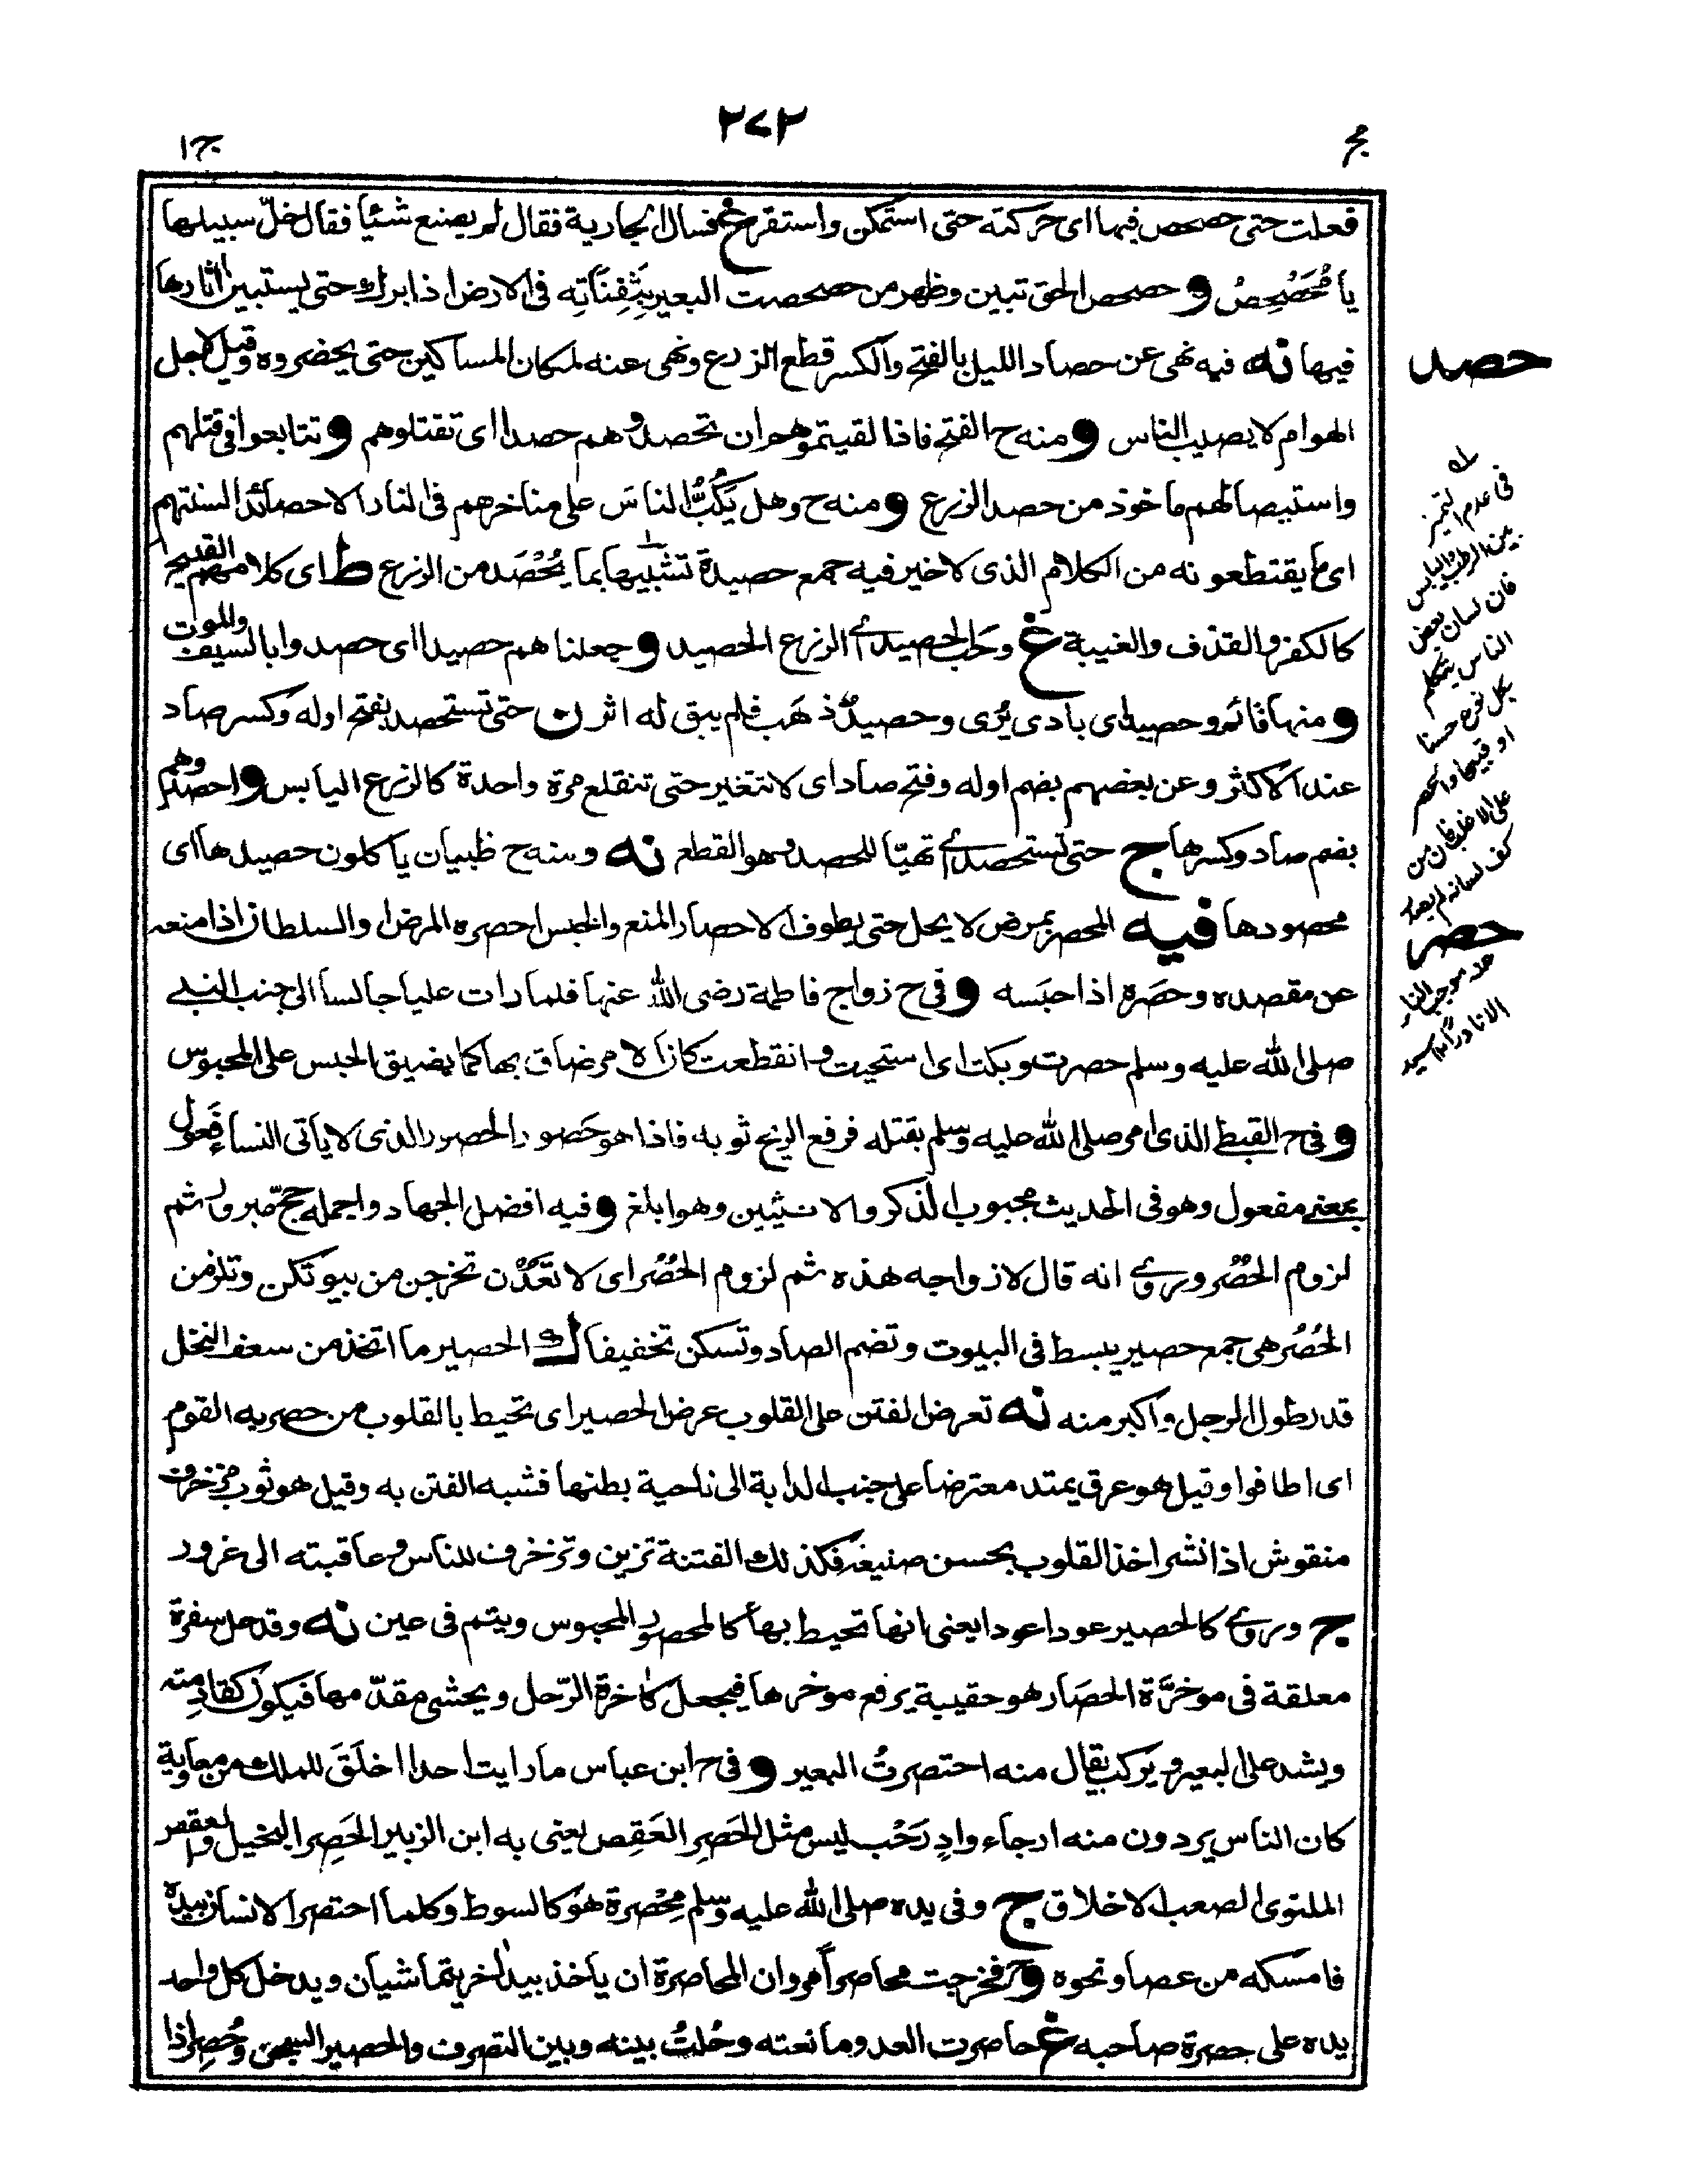 مجر
٢٧٢
ج١
فعلت حتى حصحص فيها اى حركته حتى استمكن واستقر غ فسال الجارية فقال لم يصنع شئيا فقال خلّ سبيلها
يا مُحَصْحِصُ و حصحص الحق تبين وظهر من حصحصت البعير بِثَفِنَاتِه فى الارض اذا برك حتى يستبين اثارها
فيها نه فيه نهى عن حصاد الليل بالفتح والكسر قطع الزرع ونهى عنه لمكان المساكين حتى يحضروه وقيل لاجل
الهوام لا يصيب الناس و منه ح الفتح فاذا لقيتموهم ان تحصدوهم حصدا اى تقتلوهم و تتابعوا فى قتلهم
واستيصالهم ماخوذ من حصد الزرع و منه ح وهل يَكُبُّ الناسَ على مناخرهم فى النار الا حصائد السنتهم
اى ما يقتطعونه من الكلام الذى لا خير فيه جمع حصيدة تشبيها بما يُحْصَد من الزرع ط اى كلامهم القبيح
كالكفر والقذف والغيبة غ وحَب الحصيد اى الزرع الحصيد و جعلناهم حصيدا اى حصدوا بالسيف والموت
و منها قائم وحصيد اى بادى يُرى وحصيدٌ ذهَب فلم يبق له اثر ن حتى تستحصد بفتح اوله وكسر صاد
عند الاكثر وعن بعضهم بضم اوله وفتح صاد اى لا تتغير حتى تنقلع مرة واحدة كالزرع اليابس و احصدوهم
بضم صاد وكسرها ج حتى تستحصد اى تهيّا للحصد وهو القطع نه ومنه ح ظبيان ياكلون حصيدها اى
محصودها فيه المحصر بمرض لا يحل حتى يطوف الاحصار المنع والحبس احصره المرض او السلطان اذا منعه
عن مقصده وحصَره اذا حبَسه و فى ح زواج فاطمة رضى الله عنها فلما رات عليا جالسا الى جنب النبى
صلى الله عليه وسلم حصرت وبكت اى استحيت وانقطعت كان الامر ضاق بها كما يضيق الحبس على المحبوس
و فى ح القبطى الذى امر صلى الله عليه وسلم بقتله فرفع الريح ثوبه فاذا هو حَصور الحصور الذى لا ياتى النساء فَعول
بمعنى مفعول وهو فى الحديث مجبوب الذكر والانثيين وهو ابلغ و فيه افضل الجهاد واجمله حج مبرور ثم
لزوم الحُصُر وروى انه قال لازواجه هذه ثم لزوم الحُصُر اى لا تَعُدْن تخرجن من بيوتكن وتلزمن
الحُصُر هى جمع حصير يبسط فى البيوت وتضم الصاد وتسكن تخفيفا ك الحصير ما اتخذ من سعف النخل
قدر طول الرجل واكبر منه نه تعرض الفتن على القلوب عرض الحصير اى تحيط بالقلوب من حصر به القوم
اى اطافوا وقيل هو عرق يمتد معترضا على جنب الدابة الى ناحية بطنها فشبه الفتن به وقيل هو ثوب مزخرف
منقوش اذا نشر اخذ القلوب بحسن صنيعه فكذلك الفتنة تزين وتزخرف للناس وعاقبته الى غرور
ج وروى كالحصير عودا عودا يعنى انها تحيط بها كالمحصور المحبوس ويتم فى عين نه وقد حل سفرة
معلقة فى موخرَّة الحصَار هو حقيبة يرفع موخرها فيجعل كاخرة الرّحل ويحشى مقدّمها فيكون كقادمته
ويشد على البعير ويركب يقال منه احتصرتُ البعير و فى ح ابن عباس ما رايت احدا اخلَقَ للملك من معاوية
كان الناس يردون منه ارجاء وادٍ رَحْب ليس مثل الحَصِر العَقِص يعنى به ابن الزبير الحَصِر البخيل والعقص
الملتوى الصعب الاخلاق ج وفى يده صلى الله عليه وسلم مِحْصرة هو كالسوط وكلما احتصر الانسان بيده
فامسكه من عصا ونحوه و ح فخرجت محاصرا مروان المحاصرة ان ياخذ بيد اخر يتماشيان ويد خل كل واحد
يده على حصرة صاحبه غ حاصرت العدو مانعته وحُلتُ بينه وبين التصرف والحصير السجن وحُصِر اذا
حصد
له
فى عدم التميز
بين الرطب واليابس
فان لسان بعض
الناس يتكلم
بكل نوع حسنا
او قبيحا والحصر
على الاغلب فان من
كف لسانه لم يصدر
حصر
منه موجب النار
الا نادرا سيد